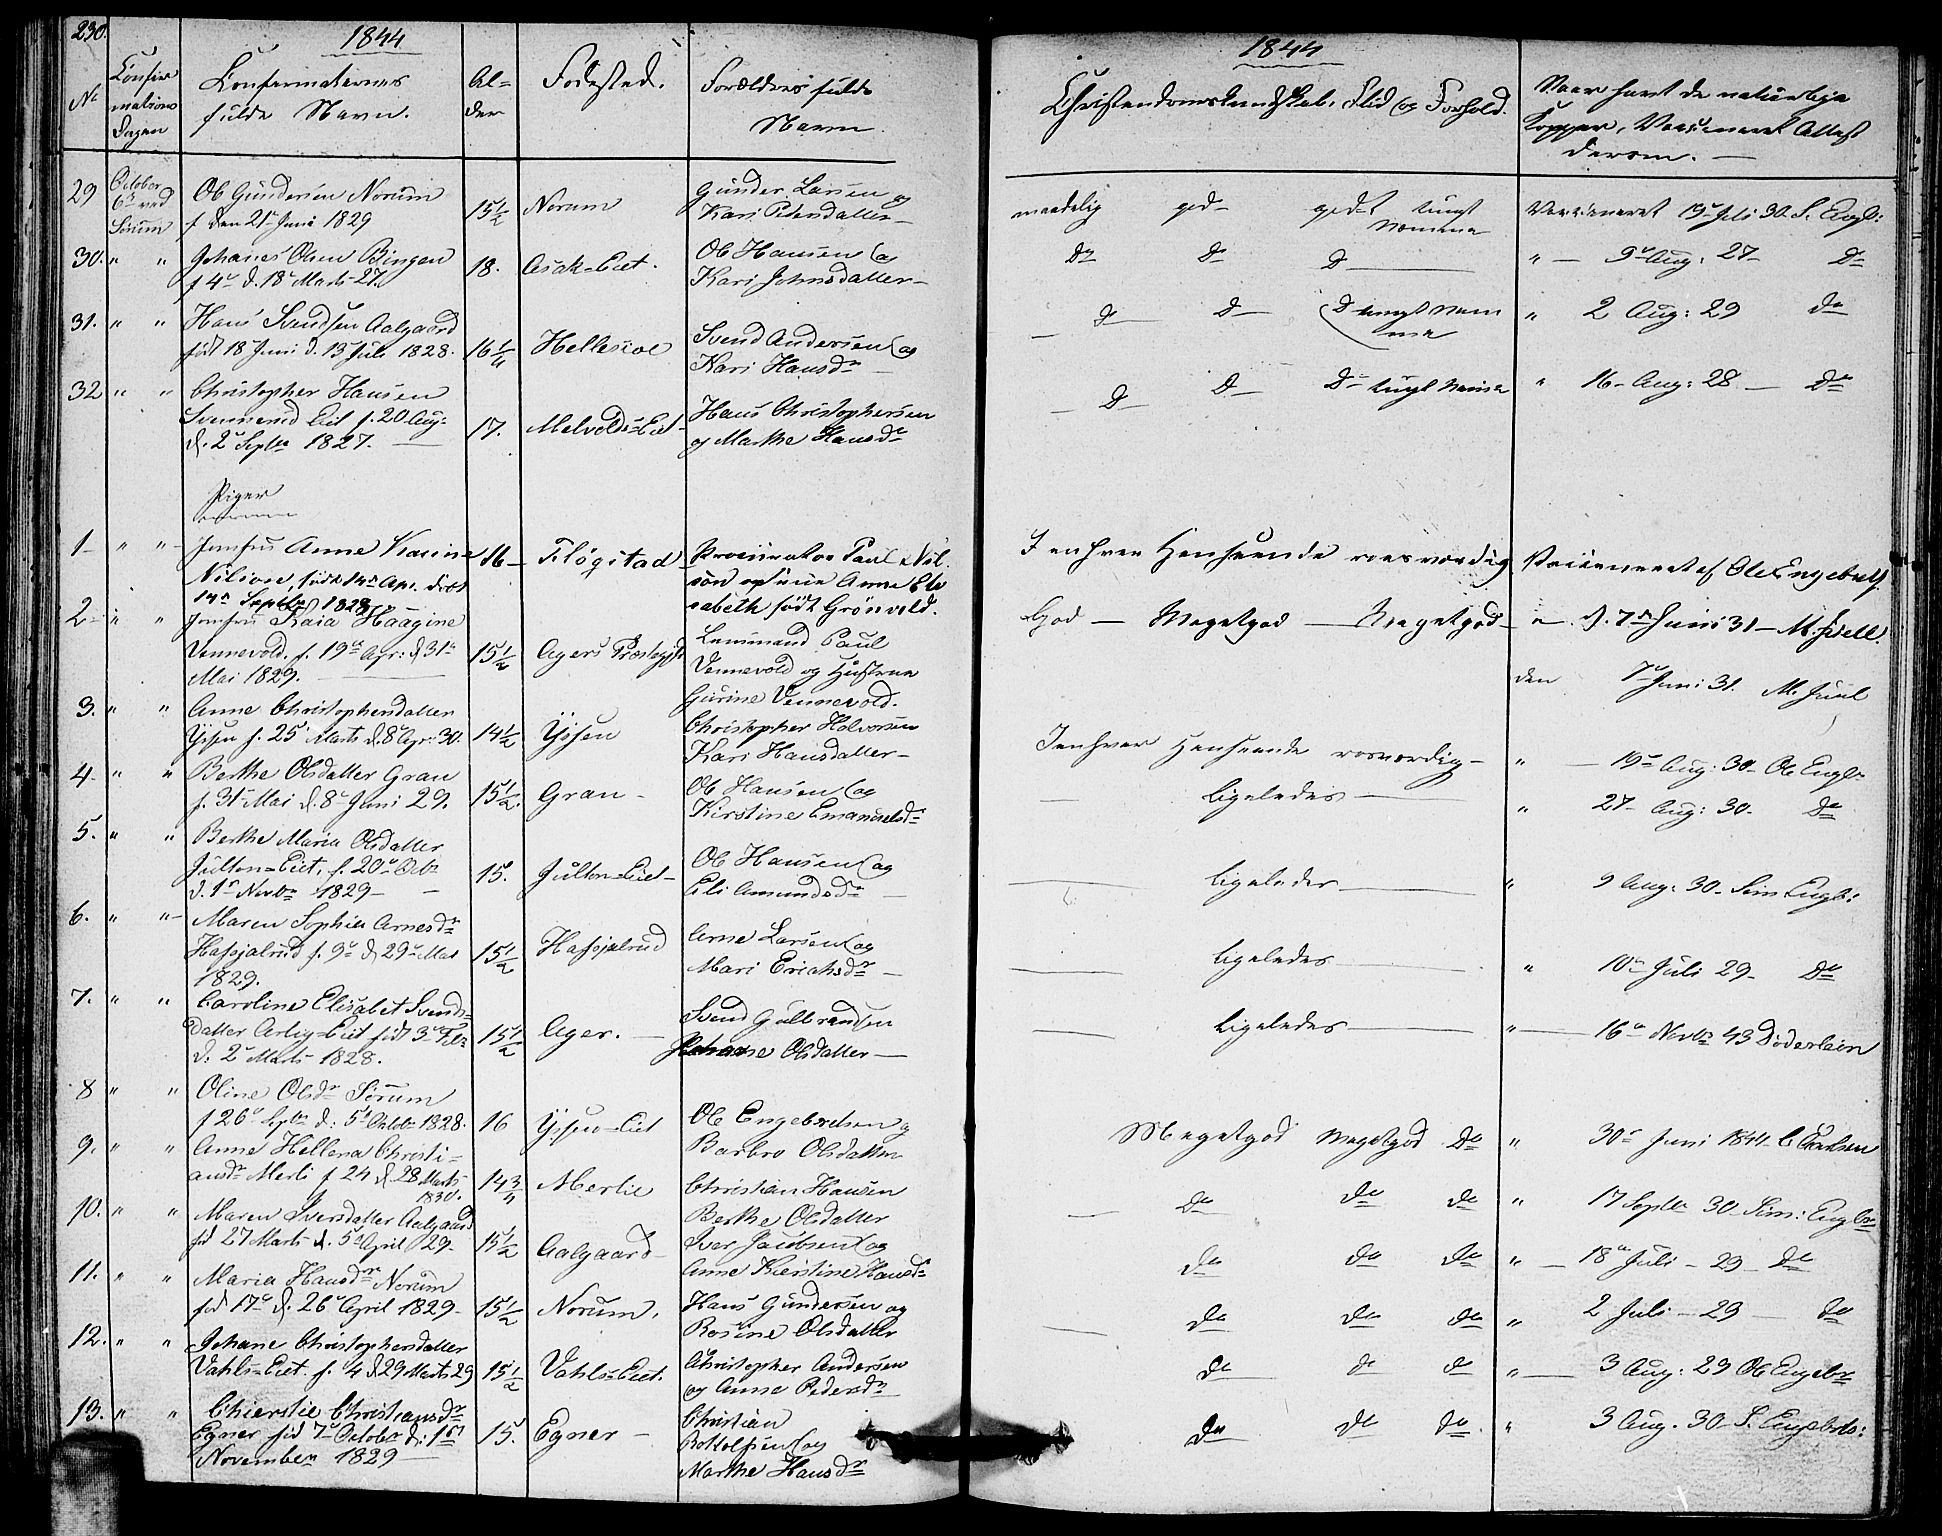 230.
1844
No
Confir
mations
Dagen
Confirmaternes
fulde Navn.
Al-
der
Fødested.
Forældres fulde
Navn.
29
October
6te ved
Sørum
Ole Gundersen Norum
f den 21de Juni 1829
15 1/2
Norum
Gunder Larsen og
Kari Pedersdatter
30. " "
Johanes Olsen Bingen
f 4de d. 18de Marts 27.
18.
Asak-Eiet.
Ole Hansen og
Kari Johnsdatter
31. " "
Hans Svendsen Aalgaard
født 18 Juni d. 13 Juli 1828.
16 1/4
Hellesioe
Svend Andersen og
Kari Hansdr
32 " "
Christopher Hansen
Svennerud Eiet f. 20 Aug:
d. 2de Septbr 1827.
17.
Melvolds-Eiet
Hans Christophersen
og Marthe Hansdr
Piger
1 " "
Jomfru Anne Karine
Nilson, født 14de Apr. døbt
14de Septbr 1828
16
Fløgstad
Procurator Paul Nil-
son og frue Anne Eli-
sabeth født Grönvold.
2 " "
Jomfru Kaia Haagine
Vennevold. f. 19de Apr: d 31te
Mai 1829.
15 1/2
Agers Præstegjd
Lensmand Paul
Vennevold og Hustrue
Gurine Vennevold.
3. " "
Anne Christophersdatter
Yssen f. 25 Marts d. 8de Apr: 30.
14 1/2
Yssen
Christopher Halvorsen
Kari Hansdatter
4 " "
Berthe Olsdatter Gran
f. 31te Mai d. 8de Juni 29.
15 1/2
Gran
Ole Hansen og
Kirstine Emanuelsdr
5. " "
Berthe Maria Olsdatter
Julton-Eiet, f. 20de Octbr
d. 1te Novbr 1829
15.
Julton-Eiet
Ole Hansen og
Eli Amundsdr
6. " "
Maren Sophia Arnesdr
Hafsjalrud f. 9de d 29de Mai
1829.
15 1/2
Hafsjalrud
Arne Larsen og
Mari Erichsdr
7. " "
Caroline Elisabet Svends-
datter Eiet født 3de Febr
d: 2de Marts 1828.
15 1/2
Ager.
Svend Gulbrandsen
Johanne Olsdatter
8 " "
Oline Olsdr Sørum
f 26de Septbr d: 5te Octobr 1828.
16
Yssen-Eiet
Ole Engebretsen og
Barbro Olsdatter
9. " "
Anne Hellena Christi-
ansdr Merli f 24 d. 28 Marts
1830.
14 3/4
Merlie
Christian Hansen
Berthe Olsdatter
10. " "
Maren Iversdatter Aalgaard
fød 27 Marts d. 5te April 29
15 1/2
Aalgaard
Iver Jacobsen og
Anne Kierstine Hansdr
11. " "
Maria Hansdr Norum
fød 17de d. 26de April 1829
15 1/2
Norum.
Hans Gundersen og
Rosine Olsdatter
12. " "
Johane Christophersdatter
Vahls-Eiet. f. 4 d 29 Marts 29
15 1/2
Vahls-Eiet.
Christopher Andersen
og Anne Pedersdr
13. " "
Chierstie Christiansdr
Egner fød 7de October d: 1ste
November 1829
15.
Egner
Christian
Bottolfsen og
Marthe Hansdr
1844
Christendomskundskab, Flid og Forhold.
Naar havt de naturlige
Kopper, Vaccineret Attest
derom.
maadelig god godt tungt
Nemme
Vaccineret 19de Juli 30. S. Engb:
Do Do Do
" 9de Aug: 27 Do
Do Do Do tungt Nem
me
" 2 Aug: 29 Do
Do Do Do tungt Nemme
" 16 Aug: 28 Do
I enhver Henseende roesværdig
Vaccineret af Ole Engebretsn
God Megetgod Megetgod
" d. 7de Juni 31 M. Juell.
den 7de Juni 31. M. Juel
I enhver Henseende rosværdig
" 19de Aug: 30 Ole Engbr
ligeledes
" 27 Aug: 30. Do
ligeledes
" 9 Aug: 30 Sim Engb:
ligeledes
" 10de Juli 29 Do
ligeledes
" 16de Novbr 43 Døderlein
Megetgod Megetgod Do
" 30te Juni 1844
Do Do Do
" 17 Septbr 30 Sim: Engbr
Do Do Do
" 18de Juli 29 Do
Do Do Do
" 2 Juli 29 Do
Do Do Do
" 3 Aug: 29 Ole Engebr
Do Do Do
" 3 Aug. 30 S. Engebrts: